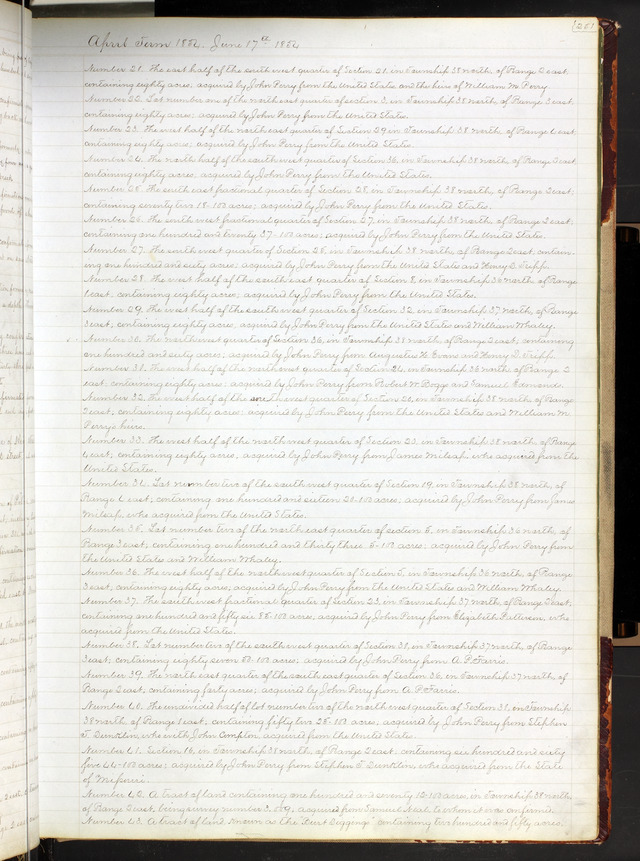 201
April Term 1854. June 17th 1854
Number 21. The east half of the south west quarter of Section 21, in Township 38 north, of Range 2 east,
containing eighty acres; acquired by John Perry from the United States and the heirs of William M. Perry.
Number 22. Lot number one of the north east quarter of section 3, in Township 38 north, of Range 3 east,
containing eighty acres; acquired by John Perry from the United States.
Number 23. The west half of the north east quarter of Section 29 in Township 38 north, of Range 4 east,
containing eighty acres; acquired by John Perry from the United States.
Number 24. The north half of the south west quarter of Section 36, in Township 38 north, of Range 3 east,
containing eighty acres, acquired by John Perry from the United States.
Number 25. The south east fractional quarter of Section 28, in Township 38 north, of Range 2 east;
containing seventy two 18-100 acres; acquired by John Perry from the United States.
Number 26. The south west fractional quarter of Section 27, in Township 38 north, of Range 2 east;
containing one hundred and twenty 37-100 acres; acquired by John Perry from the United States.
Number 27. The north west quarter of Section 25, in Township 38 north, of Range 2 east, contain-
ing one hundred and sixty acres; acquired by John Perry from the United States and Henry D. Tripp.
Number 28. The west half of the south east quarter of Section 8, in Township 36 north, of Range
4 east, containing eighty acres; acquired by John Perry from the United States.
Number 29. The west half of the south west quarter of Section 32, in Township 37 north, of Range
3 east, containing eighty acres, acquired by John Perry from the United States and William Whaley.
Number 30. The north west quarter of Section 36, in Township 38 north, of Range 2 east, containing
one hundred and sixty acres; acquired by John Perry from Augustus H. Evans and Henry D. Tripp.
Number 31. The west half of the north west quarter of Section 24, in Township 38 north, of Range 2
east, containing eighty acres; acquired by John Perry from Robert W. Boggs and Samuel Edmonds.
Number 32. The west half of the south west quarter of Section 26, in Township 38 north, of Range
2 east, containing eighty acres; acquired by John Perry from the United States and William M.
Perry's heirs.
Number 33. The west half of the north west quarter of Section 23, in Township 38 north, of Range
4 east; containing eighty acres, acquired by John Perry from James who acquired from the
United States.
Number 34. Lot number two of the south west quarter of Section 19, in Township 38 north, of
Range 4 east; containing one hundred and sixteen 20-100 acres, acquired by John Perry from James
who acquired from the United States.
Number 35. Lot number two of the north east quarter of section 5, in Township 36 north, of
Range 3 east; containing one hundred and thirty three 5-100 acres; acquired by John Perry from
the United States and William Whaley.
Number 36. The west half of the north west quarter of Section 5, in Township 36 north, of Range
3 east, containing eighty acres, acquired by John Perry from the United States and William Whaley.
Number 37. The south west fractional quarter of Section 23, in Township 37 north, of Range 3 east;
containing one hundred and fifty six 88-100 acres; acquired by John Perry from Elizabeth Patterson, who
acquired from the United States.
Number 38. Lot number two of the south west quarter of Section 31, in Township 37 north, of Range
3 east; containing eighty seven 50-100 acres; acquired by John Perry from A. P. Farris.
Number 39. The north east quarter of the south east quarter of Section 36, in Township 37 north, of
Range 2 east; containing forty acres; acquired by John Perry from A. P. Farris.
Number 40. The undivided half of lot number two of the north west quarter of Section 31, in Township
38 north, of Range 4 east, containing fifty two 28-100 acres, acquired by John Perry from Stephen
T. Dunklin, who with John Compton, acquired from the United States.
Number 41. Section 16, in Township 38 north, of Range 2 east, containing six hundred and sixty
five 44-100 acres; acquired by John Perry from Stephen T. Dunklin, who acquired from the State
of Missouri.
Number 42. A tract of land containing one hundred and seventy 10-100 acres, in Township 38 north
of Range 2 east, being survey number 3,039, acquired from Samuel Neal to whom it was confirmed.
Number 43. A tract of land known as the "Dent Diggings" containing two hundred and fifty acres,